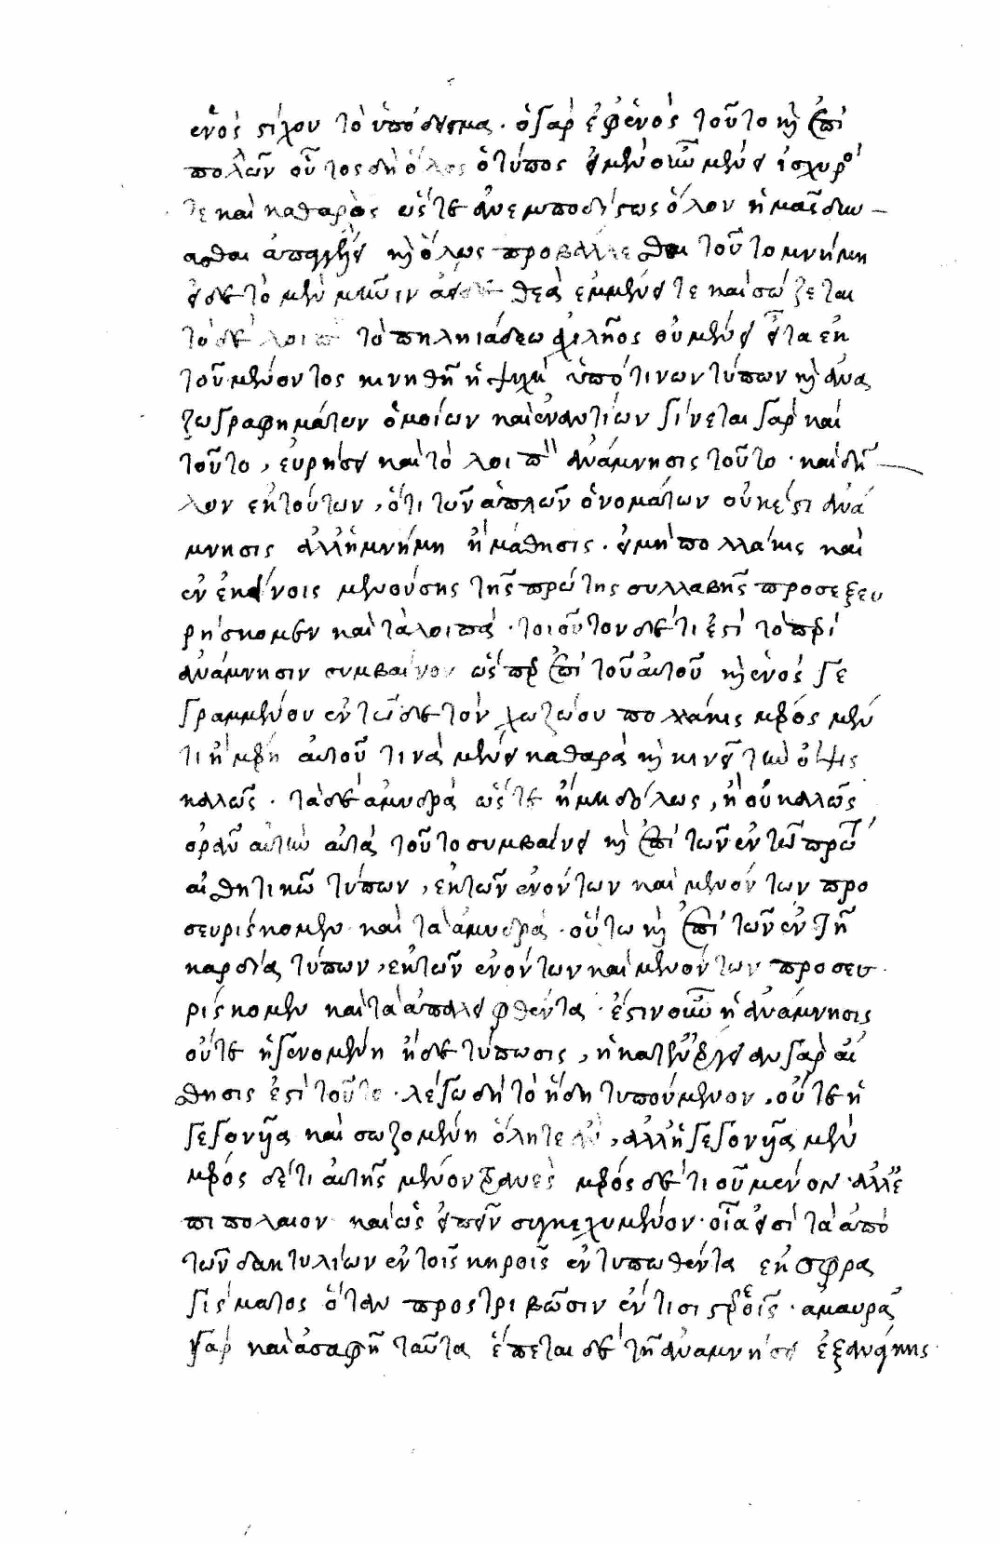 ἑνὸς στίχου τὸ ὑπόδειγμα · ὃ γὰρ ἐφ' ἑνὸς τοῦτο κὴ ἐπὶ
πολλῶν οὗτος δὴ ὅλος ὁ τύπος εἰ μὲν οὖν μένει ἰσχυρός
τε καὶ καθαρὸς ὥστε ἀνεμποδίστως ὅλον ἡμᾶς δια
σθαι ἀπαγγεῖλαι κὴ ὅλως προβάλλεσθαι τοῦτο μνήμη
εἰ δὲ τὸ μὲν μῆνιν ἄειδε θεὰ ἐμμένει τε καὶ σώζεται
τὸ δὲ λοιπὸν τὸ πηληιάδεω ἀχιλῆος οὐ μένει εἶτα ἐκ
τοῦ μένοντος κινηθῆ ἡ ψυχὴ ὑπό τινων τύπων κὴ ἀνα
ζωγραφημάτων ὁμοίων καὶ ἐναντίων γίνεται γὰρ καὶ
τοῦτο, εὑρήσει καὶ τὸ λοιπὸν ἀνάμνησις τοῦτο · καὶ δῆ
λον ἐκ τούτων, ὅτι τῶν ἁπλῶν ὀνομάτων οὐκ ἔστι ἀνά
μνησις ἀλλ' ἢ μνήμη ἢ μάθησις · εἰ μὴ πολλάκις καὶ
ἐν ἐκείνοις μενούσης τῆς πρώτης συλλαβῆς προσεξευ
ρήσκομεν καὶ τὰ λοιπά · τοιοῦτον δέ τι ἐστὶ τὸ περὶ
ἀνάμνησιν συμβαῖνον ὥσπερ ἐπὶ τοῦ αὐτοῦ κὴ ἑνὸς γε
γραμμένου ἐν τῶδε τὸν χω ζώου πολλάκις μέρος μέν
τι ἢ μέρη αὐτοῦ τινὰ μένει καθαρὰ κὴ κινεῖ τὴν ὄψις
καλῶς · τὰ δὲ ἀμυδρὰ ὥστε ἢ μηδόλως, ἢ οὐ καλῶς
ὁρᾶν αὐτὴν αὐτὰ τοῦτο συμβαίνει κὴ ἐπὶ τῶν ἐν τῶ πρώτω
αἰσθητικῶ τύπων, ἐκ τῶν ἐνόντων καὶ μενόντων προ
σευρίσκομεν καὶ τὰ ἀμυδρά · οὕτω κὴ ἐπὶ τῶν ἐν τῆ
καρδία τύπων, ἐκ τῶν ἐνόντων καὶ μενόντων προσευ
ρίσκομεν καὶ τὰ ἀπαλειφθέντα · ἔστιν οὖν ἡ ἀνάμνησις
οὔτε ἡ γενομένη ἤδε τύπωσις, ἡ κατ' ἐνέργειαν γὰρ αἴ
σθησις ἐστὶ τοῦτο · λέγω δὴ τὸ ἤδη τυπούμενον, οὔτε ἡ
γεγονυῖα καὶ σωζομένη ὅλη τε , ἀλλ' ἡ γεγονυῖα μὲν
μέρος δέ τι αὐτῆς μένον ἐναργὲς μέρος δέ τι οὐ μένον · ἀλλ' ἐ
πιπόλαιον καὶ ὡς εἰπεῖν συγκεχυμένον · οἷα εἰσὶ τὰ ἀπὸ
τῶν δακτυλίων ἐν τοῖς κηροῖς ἐντυπωθέντα ἐκ σφρα
γίσματος ὅταν προστριβῶσιν ἔν τισι στερεοῖς · ἀμαυρὰ
γὰρ καὶ ἀσαφῆ ταῦτα ἕπεται δὲ τῆ ἀναμνήσει ἐξανάγκης